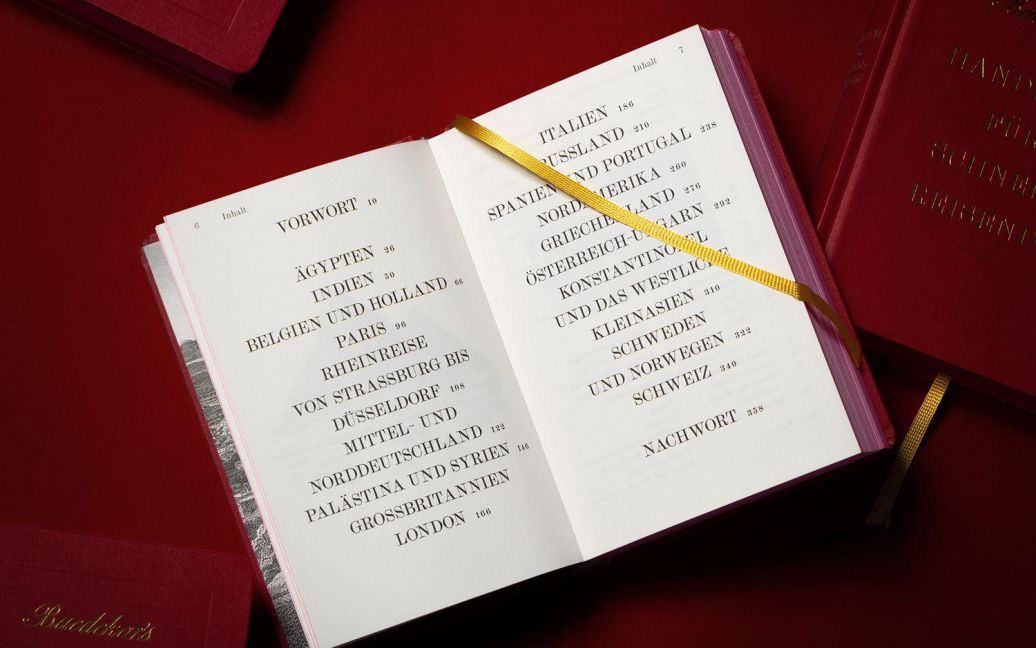 6 Inhalt
VORWORT 10
ÄGYPTEN 26
INDIEN 50
BELGIEN UND HOLLAND 66
PARIS 96
RHEINREISE
VON STRASSBURG BIS
DÜSSELDORF 108
MITTEL- UND
NORDDEUTSCHLAND 122
PALÄSTINA UND SYRIEN 146
GROSSBRITANNIEN
LONDON 166
Inhalt 7
ITALIEN 186
RUSSLAND 210
SPANIEN UND PORTUGAL 238
NORDAMERIKA 260
GRIECHENLAND 276
ÖSTERREICH-UNGARN 292
KONSTANTINOPEL
UND DAS WESTLICHE
KLEINASIEN 310
SCHWEDEN
UND NORWEGEN 322
SCHWEIZ 340
NACHWORT 358
HAND
FÜR
SCHNE
REISEN
Baedeker's